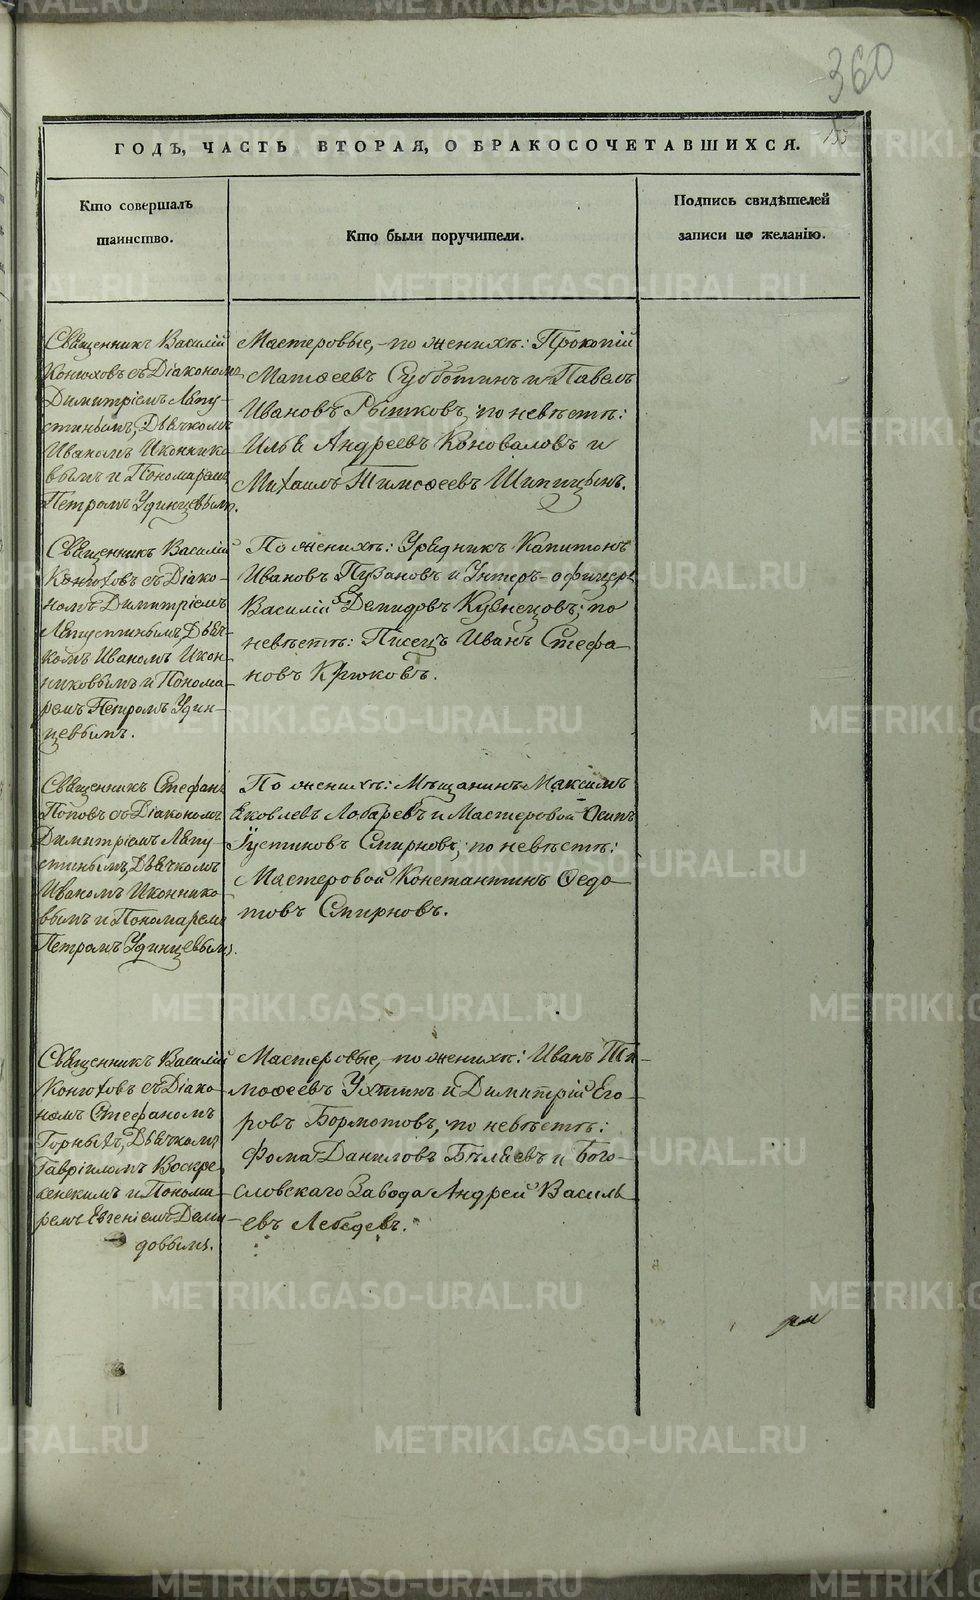 360
153
ГОДЪ, ЧАСТЬ ВТОРАЯ, О БРАКОСОЧЕТАВШИХСЯ.
Кто совершалъ
таинство.
Кто были поручители.
Подпись свидѣтелей
записи по желанію.
Священникъ Василій
Конюховъ съ Діакономъ
Димитріемъ Ляпу-
стинымъ, Дьячкомъ
Иваномъ Иконнико
вымъ и Пономаремъ
Петромъ Удинцевымъ.
Мастеровые, по женихѣ: Прокопій
Матѳеевъ Субботинъ и Павелъ
Ивановъ Рытковъ, по невѣстѣ:
Илья Андреевъ Коноваловъ и
Михаилъ Тимоѳеевъ Шипицынъ.
Священникъ Василій
Конюховъ съ Діако-
номъ Димитріемъ
Ляпустинымъ, Дьяч-
комъ Иваномъ Икон-
никовымъ и Понома-
ремъ Петромъ Удин-
цевымъ.
По женихѣ: Урядникъ Капитонъ
Ивановъ Пузановъ и Унтеръ-офицеръ
Василій Демидовъ Кузнецовъ; по
невѣстѣ: Писецъ Иванъ Стефа
новъ Крюковъ.
Священникъ Стефанъ
Поповъ съ Діакономъ
Димитріемъ Ляпу-
стинымъ, Дьячкомъ
Иваномъ Иконнико-
вымъ и Пономаремъ
Петромъ Удинцевымъ.
По женихѣ: Мѣщанинъ Максимъ
Яковлевъ Лобаревъ и Мастеровой Осипъ
Густиновъ Смирновъ, по невѣстѣ:
Мастеровой Константинъ Ѳедо-
товъ Смирновъ.
Священникъ Василій
Конюховъ съ Діако-
номъ Стефаномъ
Горныхъ, Дьячкомъ
Гавріиломъ Воскре-
сенскимъ и Понома-
ремъ Евгеніемъ Деми-
довымъ.
Мастеровые, по женихѣ: Иванъ Ти-
моѳеевъ Ухтинъ и Димитрій Его-
ровъ Бормотовъ, по невѣстѣ:
Фома Даниловъ Бѣляевъ и Бого-
словскаго Завода Андрей Василь-
евъ Лебедевъ.
METRIKI.GASO-URAL.RU